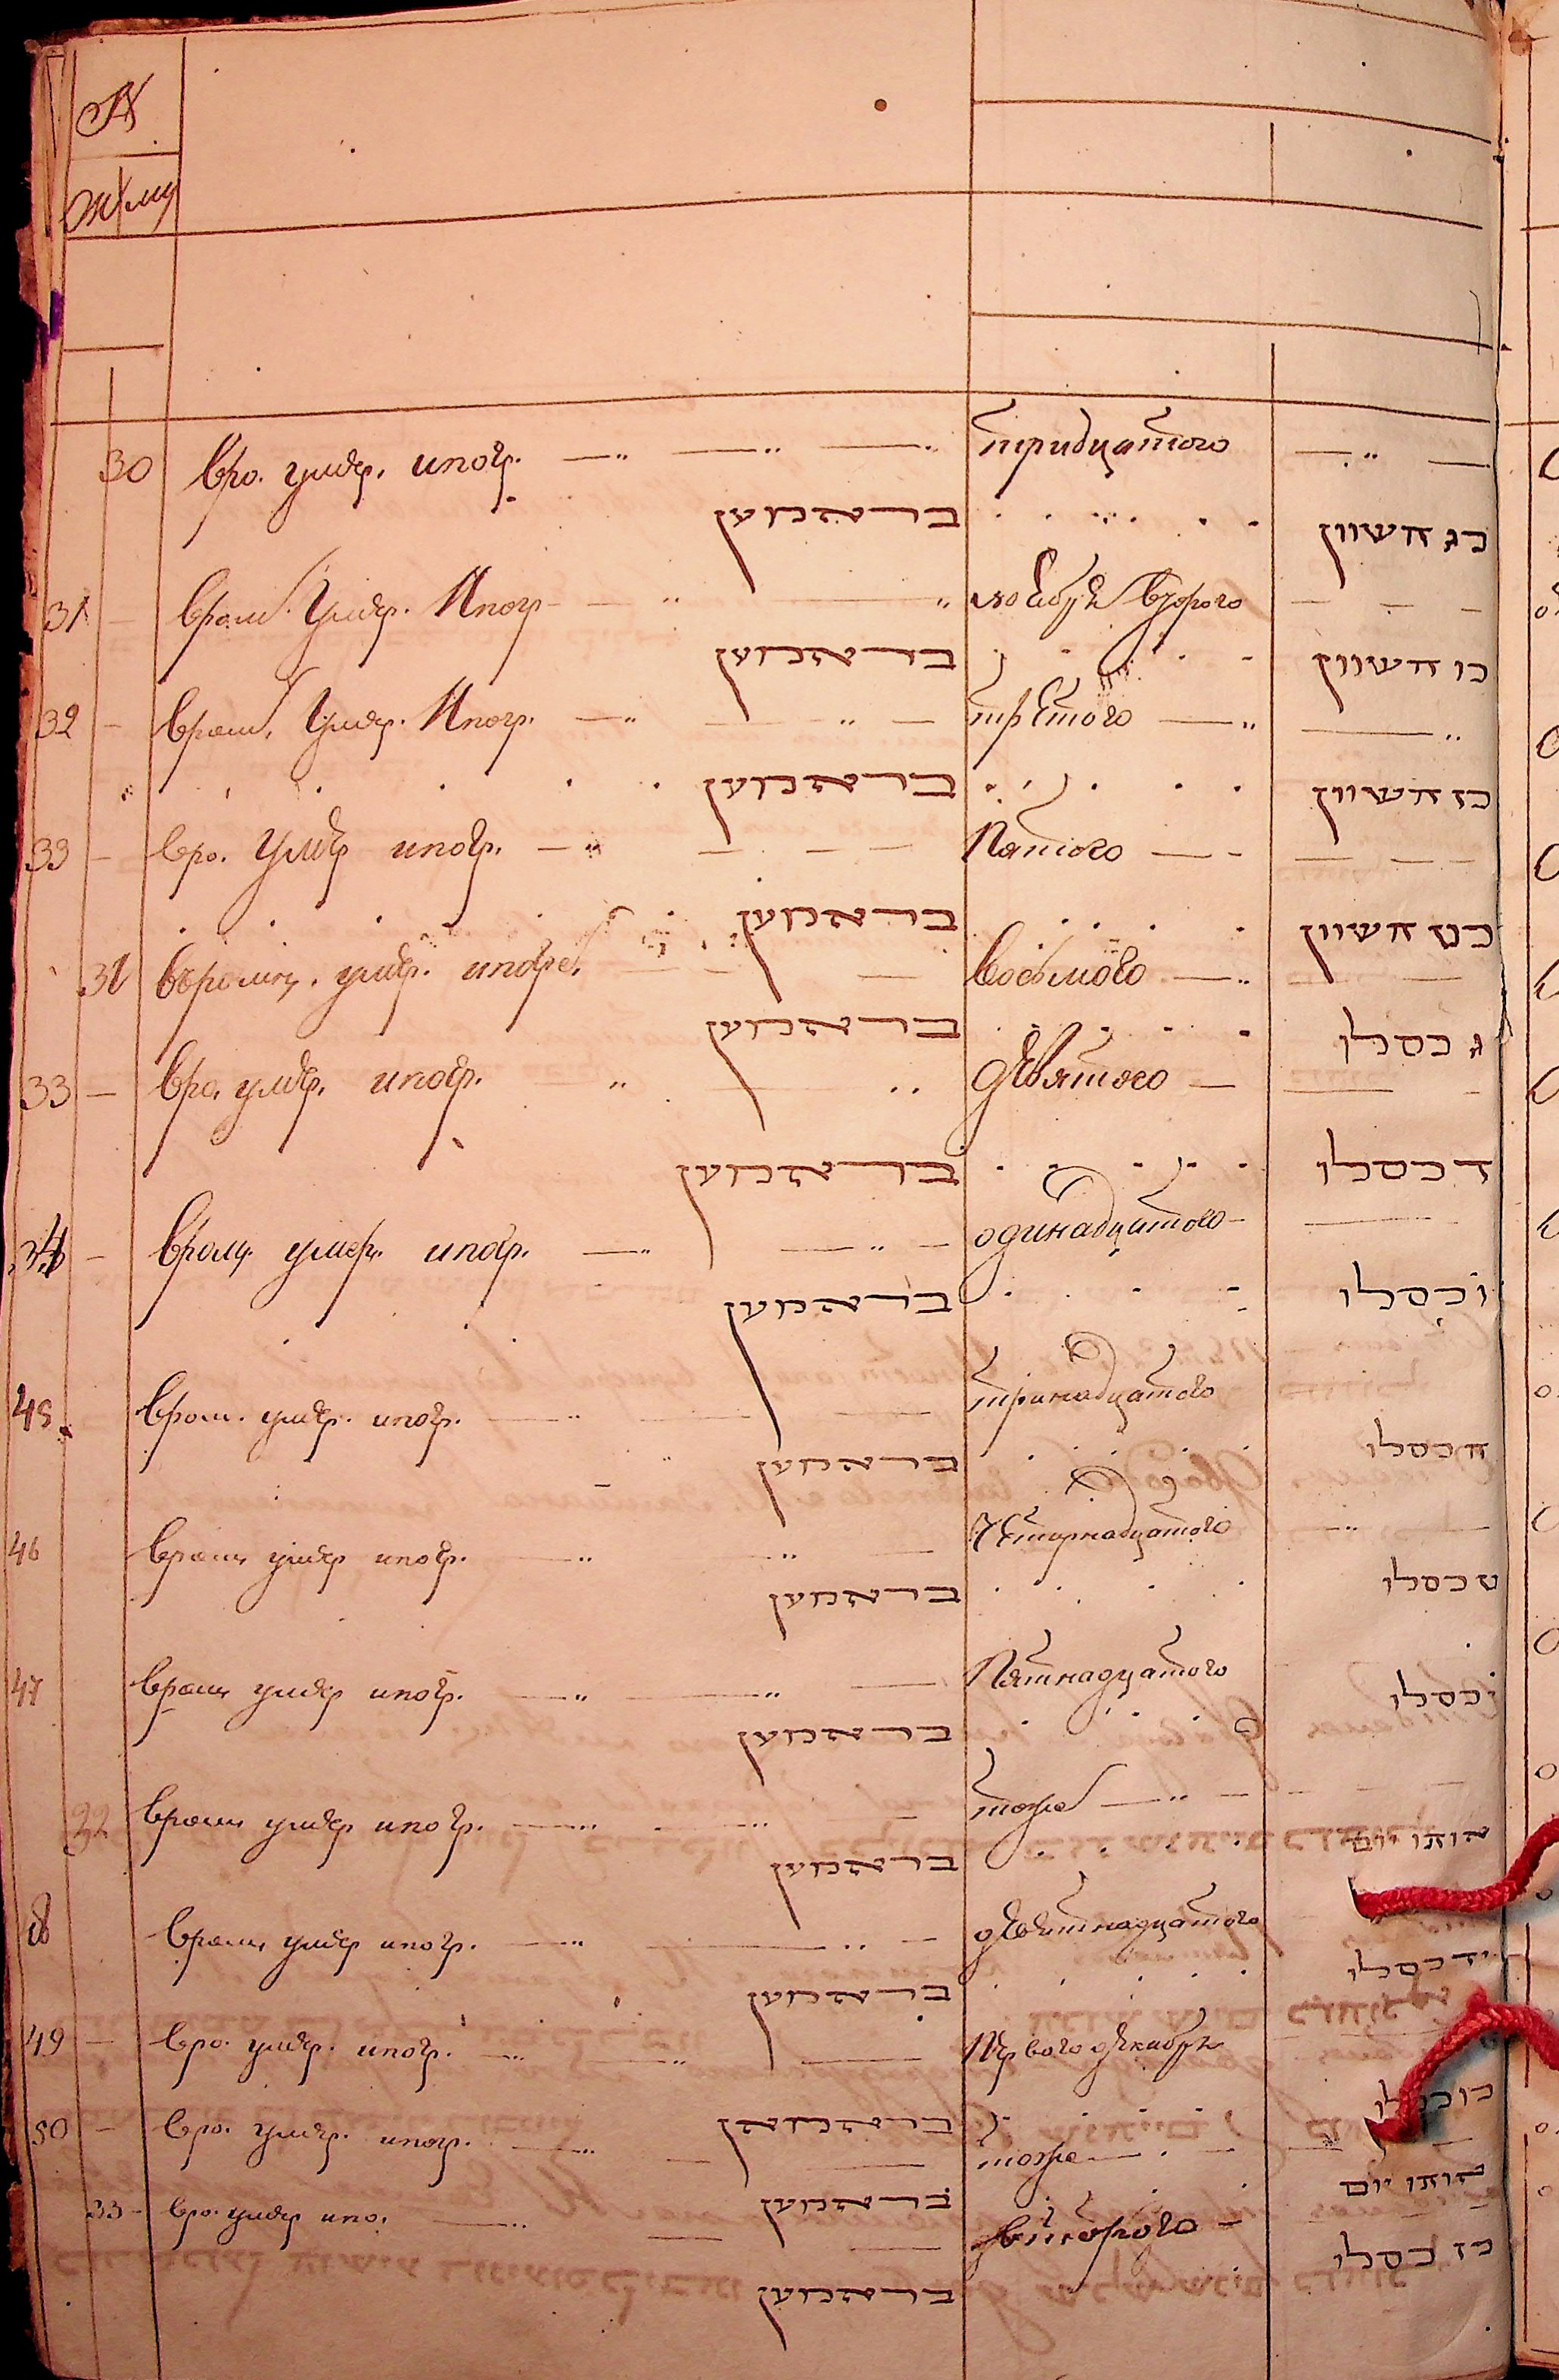 №
муж
30 вро. умер. и погр. тридцатого
בראמען כג חשוון
31 вром. Умер. И погр. ноебря второго
בראמען כו חשוון
32 вром. Умер. И погр. третого
בראמען כז חשוון
33 вро. Умер и погр. Пятого
בראמען כט חשוון
31 умер. и погре. восьмого
בראמען ג כסלו
33 вро. умер. и погр. девятого
בראמען ד כסלו
34 вром. умер. и погр. одинадцатого
בראמען ו כסלו
45 вром. умер. и погр. тринадцатого
בראמען ח כסלו
46 вром умер и погр. Четырнадцатого
בראמען ט כסלו
47 вром умер и погр. Пятнадцатого
בראמען י כסלו
32 вром умер и погр. тогже
בראמען אותו יום
вром умер и погр. девятнадцатого
בראמען יד כסלו
49 вро. умер. и погр. Первого декабря
בראמאן כו כסלו
50 вро. умер. и погр. тогже
בראמען אותו יום
33 вро. умер и по. второго
בראמען כז כסלו